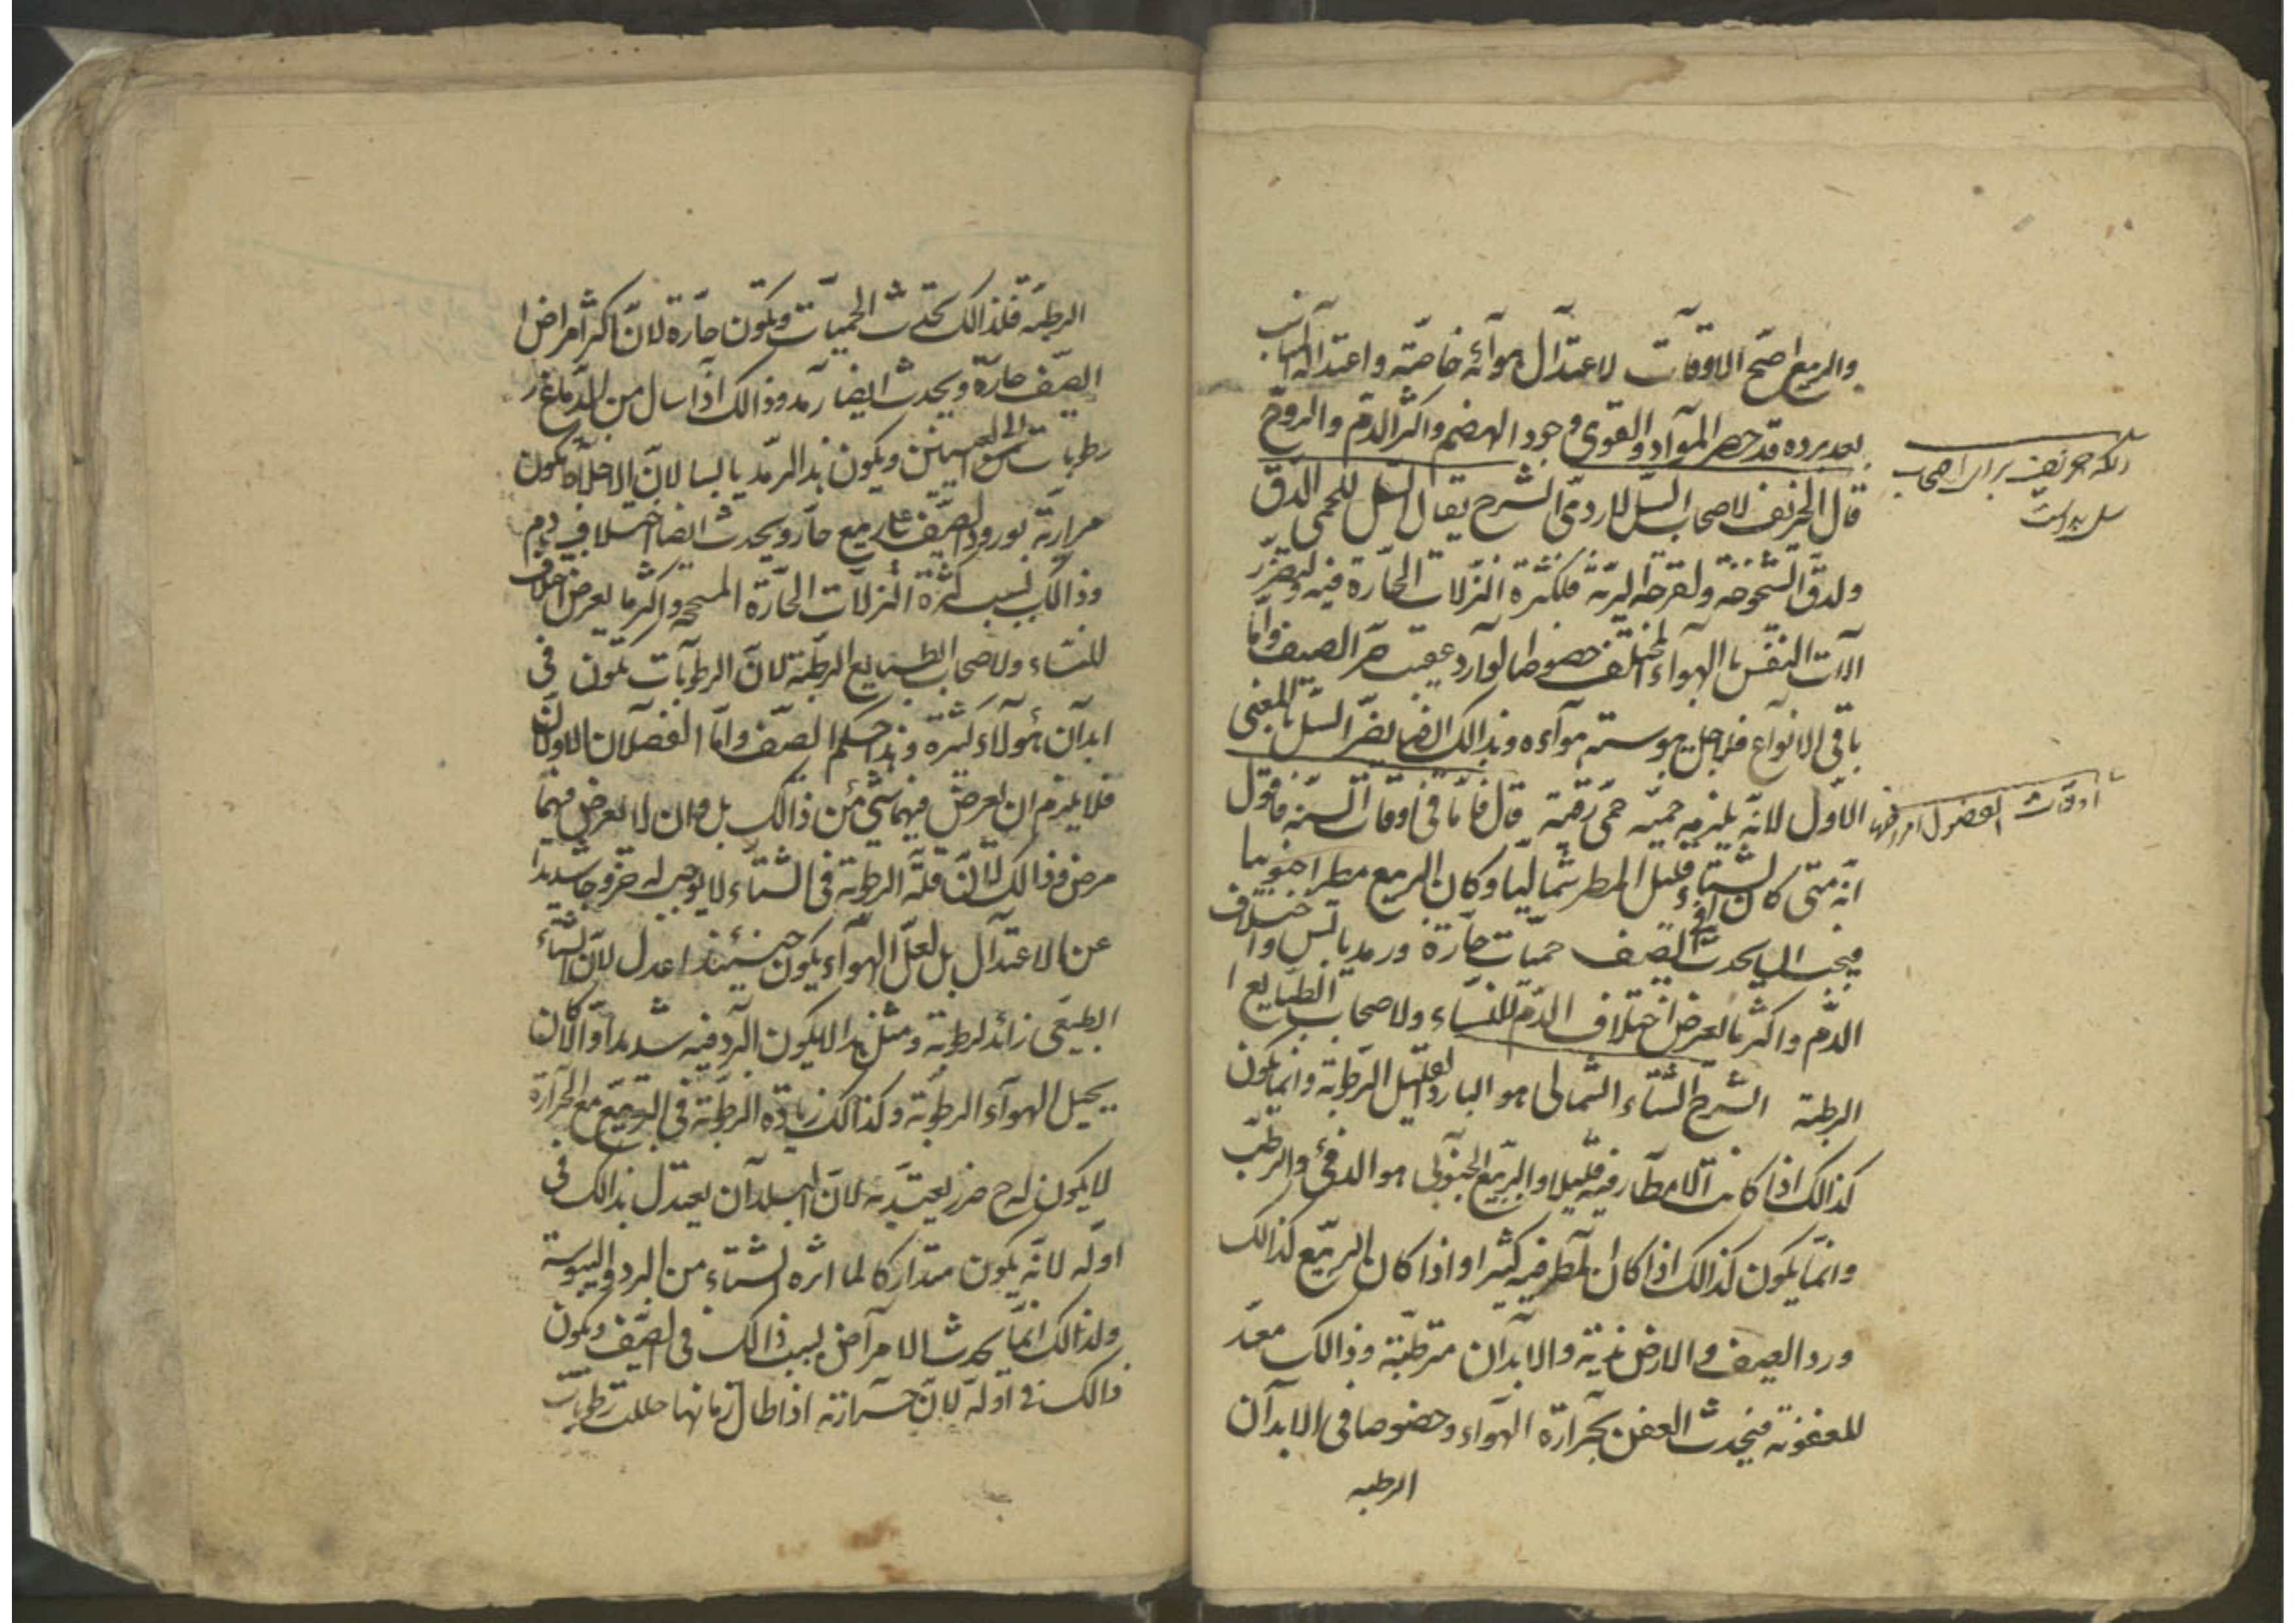 والربيع اصح الاوقات لاعتدال هوائه خاصة واعتداله
بعد برده قد حصر المواد والقوى وجود الهضم واكثر الدم والروح
قال الخريف لاصحاب السل للاردى الشرح يقال السل للحمى الدق
ولدق الشيخوخة ولقرحة الرية فلكثرة النزلات الحارة فيه وتضرر
الات النفس بالهواء المختلف خصوصا الوارد عقيب حر الصيف واما
باقى الانواع فلاجل يبوسته هواءه وبذالك ايضا يضر السل بالمعنى
الاول لانه يلزمه حمى دقية قال فاما فى اوقات السنة فاقول
انه متى كان الشتاء قليل المطر شماليا وكان الربيع مطرا جنوبيا
فيجب ان يحدث فى الصيف حميات حارة ورمد يابس واختلاف
الدم واكثر ما يعرض اختلاف الدم للنساء ولاصحاب الطبايع
الرطبة الشرح الشتاء الشمالى هو البارد القليل الرطوبة وانما يكون
كذالك اذا كانت الامطار فيه قليلا والربيع الجنوبى هو الدفئ والرطب
وانما يكون كذالك اذا كان المطر فيه كثيرا واذا كان الربيع كذالك
ورد الصيف والارض ندية والابدان مترطبة وذالك معد
للعفونة فيحدث العفن بحرارة الهواء وخصوصا فى الابدان
الرطبه
خريف برای اصحاب
سل بد است
اوقات الفصول
الرطبه فلذالك تحدث الحميات وتكون حارة لان اكثر امراض
الصيف حارة ويحدث ايضا رمد وذالك اذا سال من الدماغ
رطوبات الى العينين ويكون هذا الرمد يابسا لان الاخلاط يكون
مرارية لورود الصيف على ربيع حار ويحدث ايضا اختلاف دم
وذالك بسبب كثرة النزلات الحارة المسحجة واكثر ما يعرض اختلاف
للنساء ولاصحاب الطبايع الرطبة لان الرطوبات تكون فى
ابدان هؤلاء كثيرة وهذا حكم الصيف واما الفصلان الاولان
فلا يلزم ان يعرض فيهما شئ من ذالك بل وان لا يعرض فيهما
مرض وذالك لان قلة الرطوبة فى الشتاء لا يوجب له خروجا شديدا
عن الاعتدال بل لعل الهواء يكون حينئذ اعدل لان الشتاء
الطبيعى زائد لرطوبة ومثل هذا لا يكون البرد فيه شديدا والا كان
يحيل الهواء الرطوبة وكذالك زيادة الرطوبة فى الربيع مع الحرارة
لا يكون له ح ضرر يعتد به لان البدان يعتدل بذالك فى
اوله لانه يكون متداركا لما اثره الشتاء من البرد واليبوسة
ولذالك انما يحدث الامراض بسبب ذالك فى الصيف ويكون
ذالك فى اوله لان حرارته اذا طال زمانها حللت رطوبات